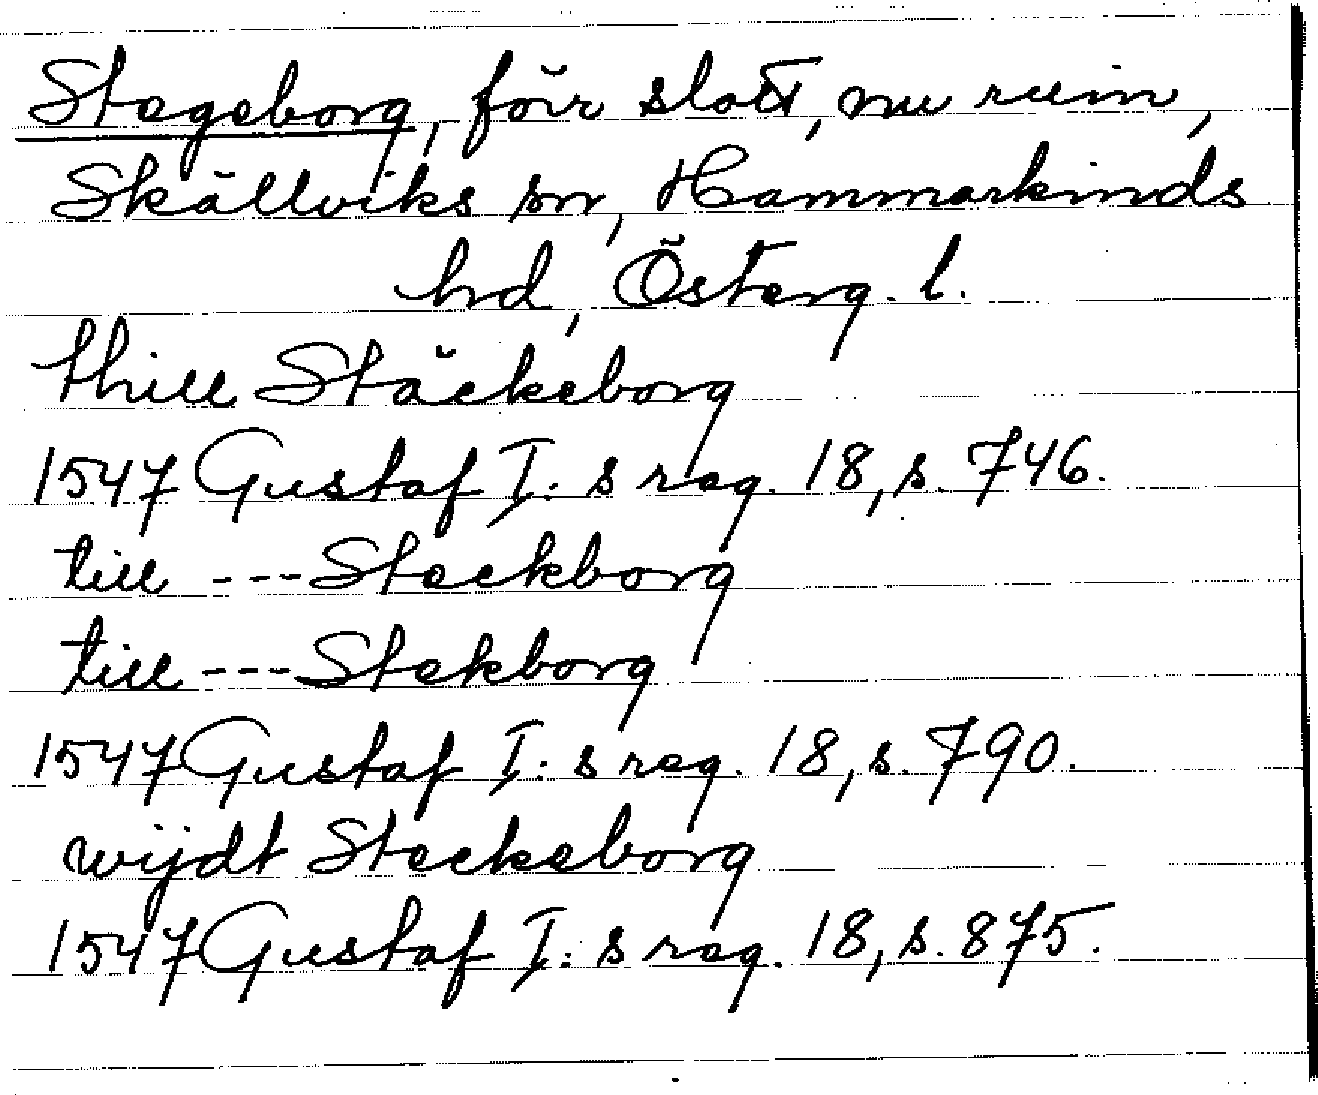 Stegeborg, förr slott, nu ruin,
Skällviks sn, Hammarkinds
hd, Österg. l.
thill Stäckeborg
1547 Gustaf I:s reg. 18, s. 746.
till ---Steckborg
till ---Stekborg
1547 Gustaf I:s reg. 18, s. 790.
wijdt Steckeborg
1547 Gustaf I:s reg. 18, s. 875.